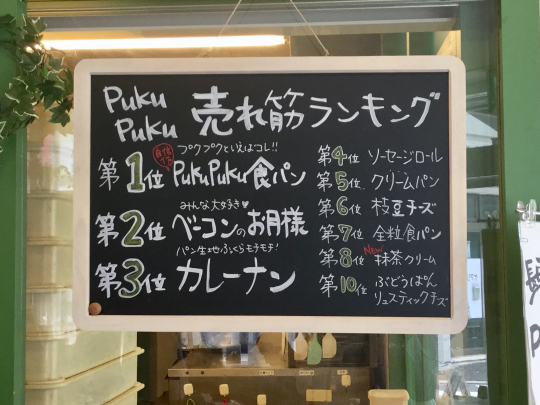 PUKU
PUKU
売れ筋ランキング
自信作
プクプクといえばコレ!!
第1位 PUKUPUKU食パン
みんな大好き♥
第2位 ベーコンのお月様
パン生地ふっくらモチモチ!
第3位 カレーナン
第4位 ソーセージロール
第5位 クリームパン
第6位 枝豆チーズ
第7位 全粒食パン
NEW
第8位 抹茶クリーム
第10位 ぶどうぱん
リュスティックチーズ